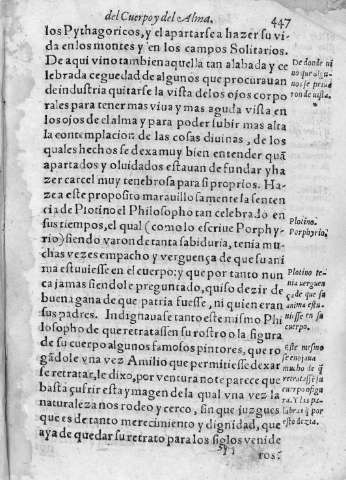 del Cuerpo y del Alma.
447
los Pythagoricos, y el apartarse a hazer su vi-
da en los montes y en los campos Solitarios.
De aqui vino tambien aquella tan alabada y ce
lebrada ceguedad de algunos que procurauan
de industria quitarse la vista de los ojos corpo
rales para tener mas viua y mas aguda vista en
los ojos de el alma y para poder subir mas alta
la contemplacion de las cosas diuinas, de los
quales hechos se dexa muy bien entender quã
apartados y oluidados estauan de fundar y ha
zer carcel muy tenebrosa para si proprios. Ha-
ze a este proposito marauillosamente la senten
cia de Plotino el Philosopho tan celebrado en
sus tiempos, el qual (como lo escriue Porphy-
rio) siendo varon de tanta sabiduria, tenia mu-
chas vezes empacho y verguença de que su ani
ma estuuiesse en el cuerpo: y que por tanto nun
ca jamas siendole preguntado, quiso dezir de
buena gana de que patria fuesse, ni quien eran
sus padres. Indignauase tanto este mismo Phi
losopho de que retratassen su rostro o la figura
de su cuerpo algunos famosos pintores, que ro
gãdole vna vez Amilio que permitiesse dexar
se retratar, le dixo, por ventura no te parece que
basta çufrir esta ymagen de la qual vna vez la
naturaleza nos rodeo y cerco, sin que juzgues
que es de tanto merecimiento y dignidad, que
aya de quedar su retrato para los siglos venide
ros:
De donde vi
no que algu-
nos se priua
ron de vista.
Plotino.
Porphyrio.
Plotino te-
nia verguen
ça de que su
anima estu-
uiesse en su
cuerpo.
Este mesmo
se enojaua
mucho de q̃
retratasse su
cuerpo o figu
ra. Y las pa-
labras q̃ por
esto dezia.